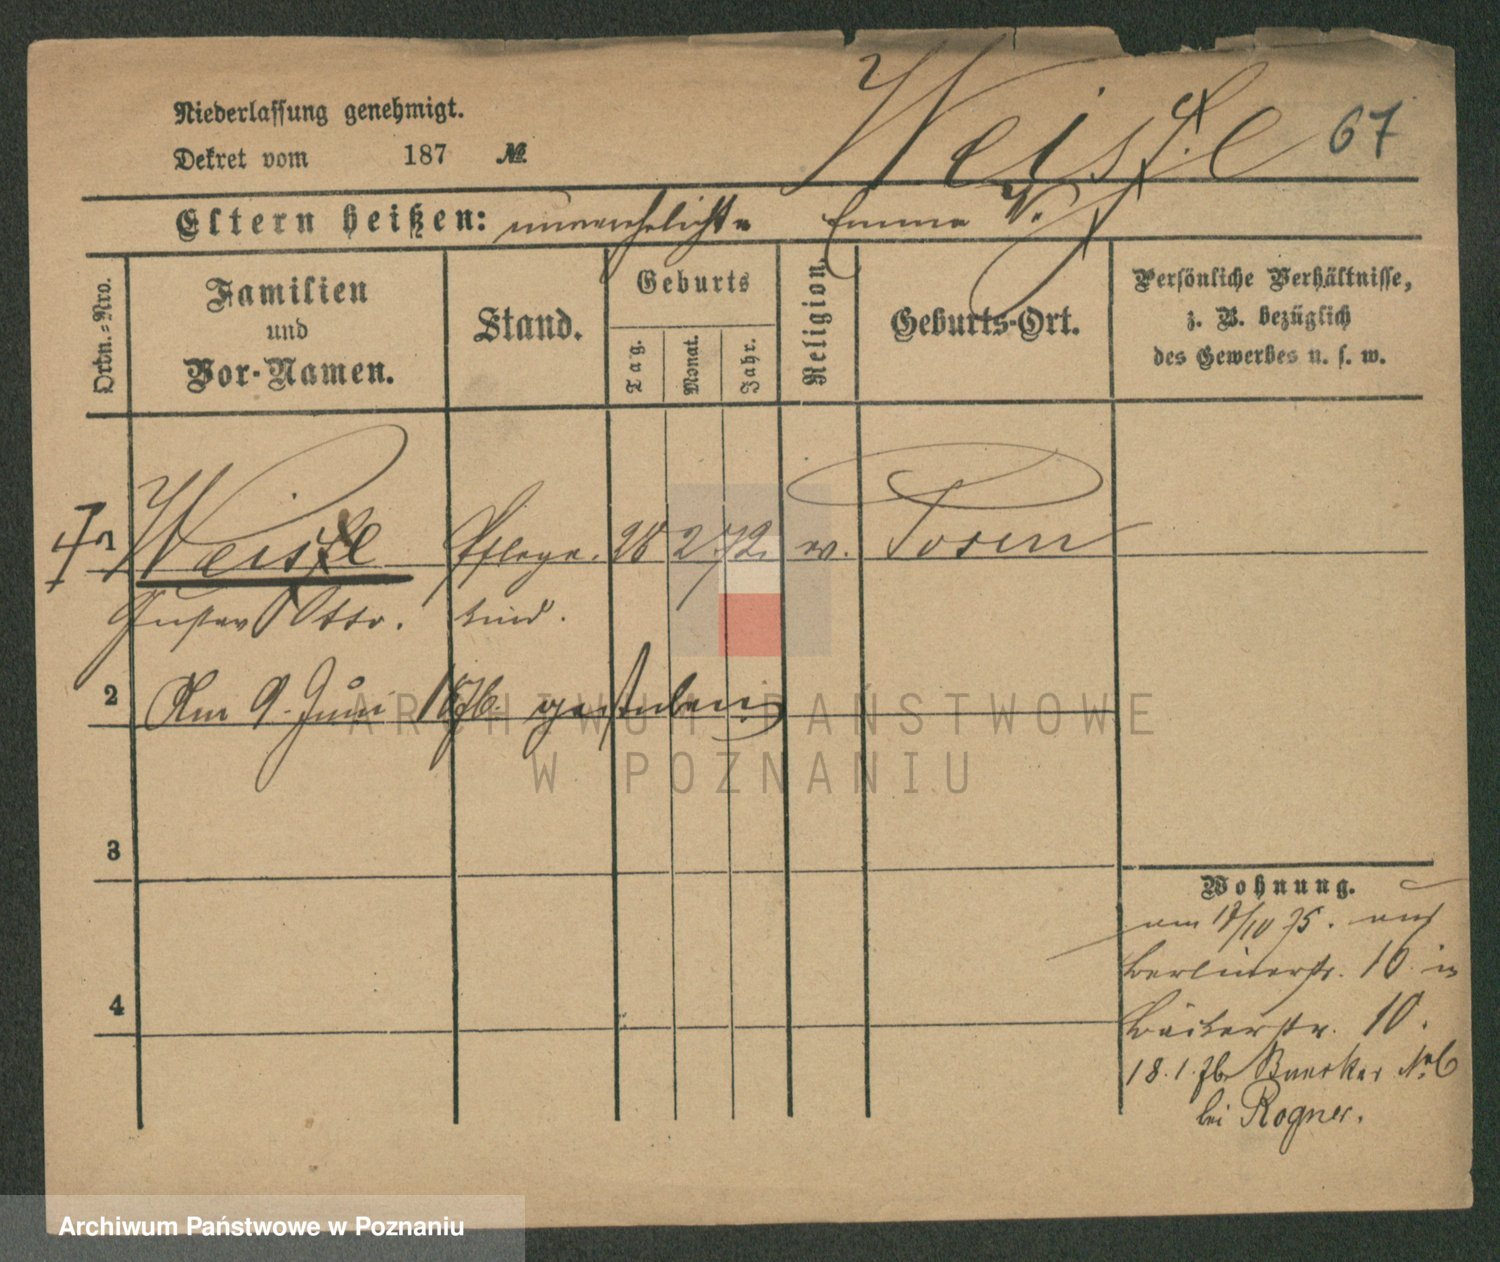 Niederlassung genehmigt.
Dekret vom 187 №
Weiste 67
Eltern heißen: unverehelichte Emma W.
Ordn.-Nro.
Familien und Vor-Namen.
Stand.
Geburts
Tag. Monat. Jahr.
Religion.
Geburts-Ort.
Persönliche Verhältnisse,
z. B. bezüglich
des Gewerbes u. s. w.
1 Pflege- 28 2 72. ev. Posen
Gustav Otto. kind.
2 Am 9. Juni 1876. gestorben.
3
4
Wohnung.
am 17/10 75. aus
Berlinerstr. 10 in
Bäckerstr. 10.
18. 1. 76 Baecker No 6
bei Rogner.
ARCHIWUM PAŃSTWOWE
W POZNANIU
Archiwum Państwowe w Poznaniu